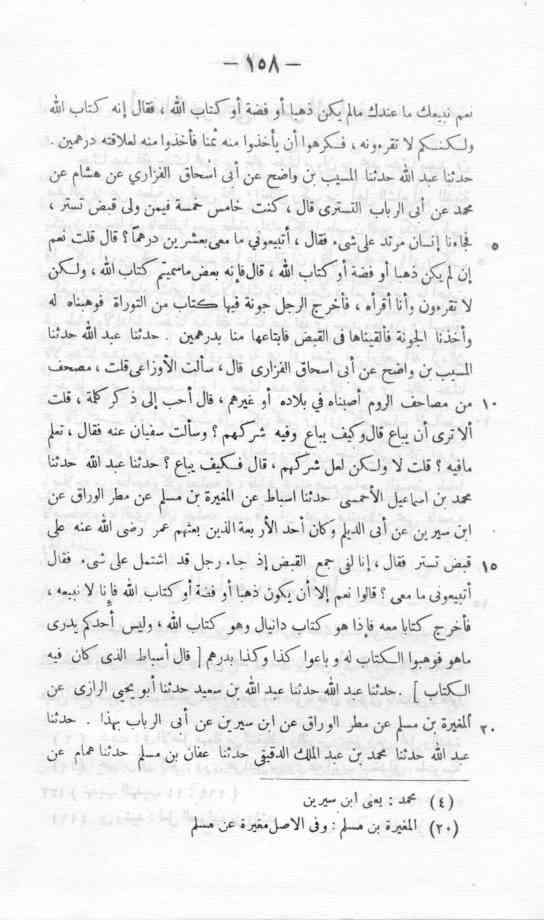 — ١٥٨ —
نعم نبيعك ما عندك مالم يكن ذهبا أو فضة أو كتاب الله ، فقال إنه كتاب الله
ولـكنـكم لا تقرءونه ، فـكرهوا أن يأخذوا منه ثمنا فأخذوا منه لعلاقته درهمين .
حدثنا عبد الله حدثنا المسيب بن واضح عن أبى اسحاق الفزاري عن هشام عن
محمد عن أبى الرباب التسترى قال ، كنت خامس خمسة فيمن ولى قبض تستر ،
فجاءنا إنسان مرتد على شىء فقال ، أتبيعوني ما معى بعشرين درهماً؟ قال قلت نعم ٥
إن لم يكن ذهبا أو فضة أو كتاب الله ، قال فإنه بعض ماسميتم كتاب الله ، ولـكن
لا تقرءون وأنا أقرأه ، فأخرج الرجل جونة فيها كتاب من التوراة فوهبناه له
وأخذنا الجونة فألقيناها فى القبض فابتاعها منا بدرهمين . حدثنا عبد الله حدثنا
المسيب بن واضح عن أبى اسحاق الفزارى قال ، سألت الأوزاعى قلت ، مصحف
من مصاحف الروم أصبناه في بلاده أو غيرهم ، قال أحب إلى ذكر كلمة ، قلت ١٠
ألا ترى أن يباع قال وكيف يباع وفيه شركهم ؟ وسألت سفيان عنه فقال ، تعلم
مافيه ؟ قلت لا ولـكن لعل شركهم ، قال فـكيف يباع ؟ حدثنا عبد الله حدثنا
محمد بن اسماعيل الأحمسى حدثنا اسباط عن المغيرة بن مسلم عن مطر الوراق عن
ابن سيرين عن أبى الديلم وكان أحد الأربعة الذين بعثهم عمر رضى الله عنه على
قبض تستر فقال ، إنا لفى جمع القبض إذ جاء رجل قد اشتمل على شىء فقال ١٥
أتبيعونى ما معى ؟ قالوا نعم إلا أن يكون ذهبا أو فضة أو كتاب الله فإنا لا نبيعه ،
فأخرج كتابا معه فإذا هو كتاب دانيال وهو كتاب الله ، وليس أحدكم يدرى
ماهو فوهبوا الـكتاب له وباعوا كذا وكذا بدرهم [ قال أسباط الذى كان فيه
الـكتاب ] . حدثنا عبد الله حدثنا عبد الله بن سعيد حدثنا أبو يحيى الرازى عن
المغيرة بن مسلم عن مطر الوراق عن ابن سيرين عن أبى الرباب بهذا . حدثنا ٢٠
عبد الله حدثنا محمد بن عبد الملك الدقيقى حدثنا عفان بن مسلم حدثنا همام عن
(٤) محمد : يعنى ابن سيرين
(٢٠) المغيرة بن مسلم : وفى الاصل مغيرة عن مسلم